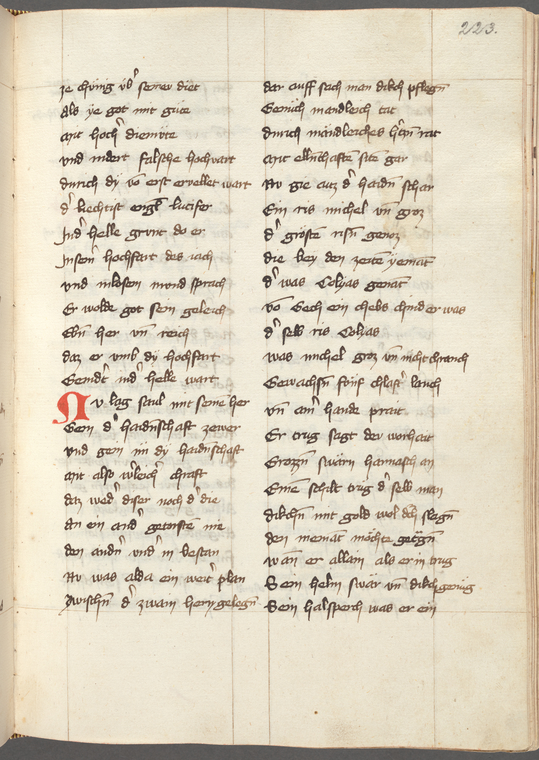 223.
ze chvnig vb' seinew diet
Als ye got mit güte
mit hoch' diemüte
vnd nidert falsche hochvart
durich dy vo erst ervellet wart
d' liechtist engl lucifer
In d' helle grunt do er
In sein' hochfart des iach
vnd mit dem mund sprach
Er wolde got sein geleich
Ebn her vn reich
daz er vmb dy hochfart
Gesendt in d' helle wart
Nv lag saul mit seine her
Gein d' haidnschaft ze wer
vnd gein im dy haidnschaft
mit also weleich' chraft
daz wed' diser noch d' die
An ein and' getorste nie
den andn vnd' in bestan
Nv was alda ein weit' plan
Zwischn d' zwain hern gelegn
dar auff sach man dikch pflegn
Genueg mandleich tat
durich mandleiches h'czn rat
mit ellnthaften site gar
Nv gie auz d' haidn schar
Ein ris michel vn groz
d' gröste risn genoz
die bey den zeite yemat
d' was Golyas genat
vo Gech ein chebs chind er was
d' selb ris Golyas
was michel groz vn nicht chranch
Gewachsn fünf chlaft' lanch
vn ain' hande prait
Er trug sagt der warhait
Grozzn swärn harnasch an
Einē schilt trug d' selb man
dikchn mit gold wol dch slegn
den niemat möchte getrgn
wan er allain als er in trug
Sein helm swär vn dikch genug
Sein halsperch was er ein